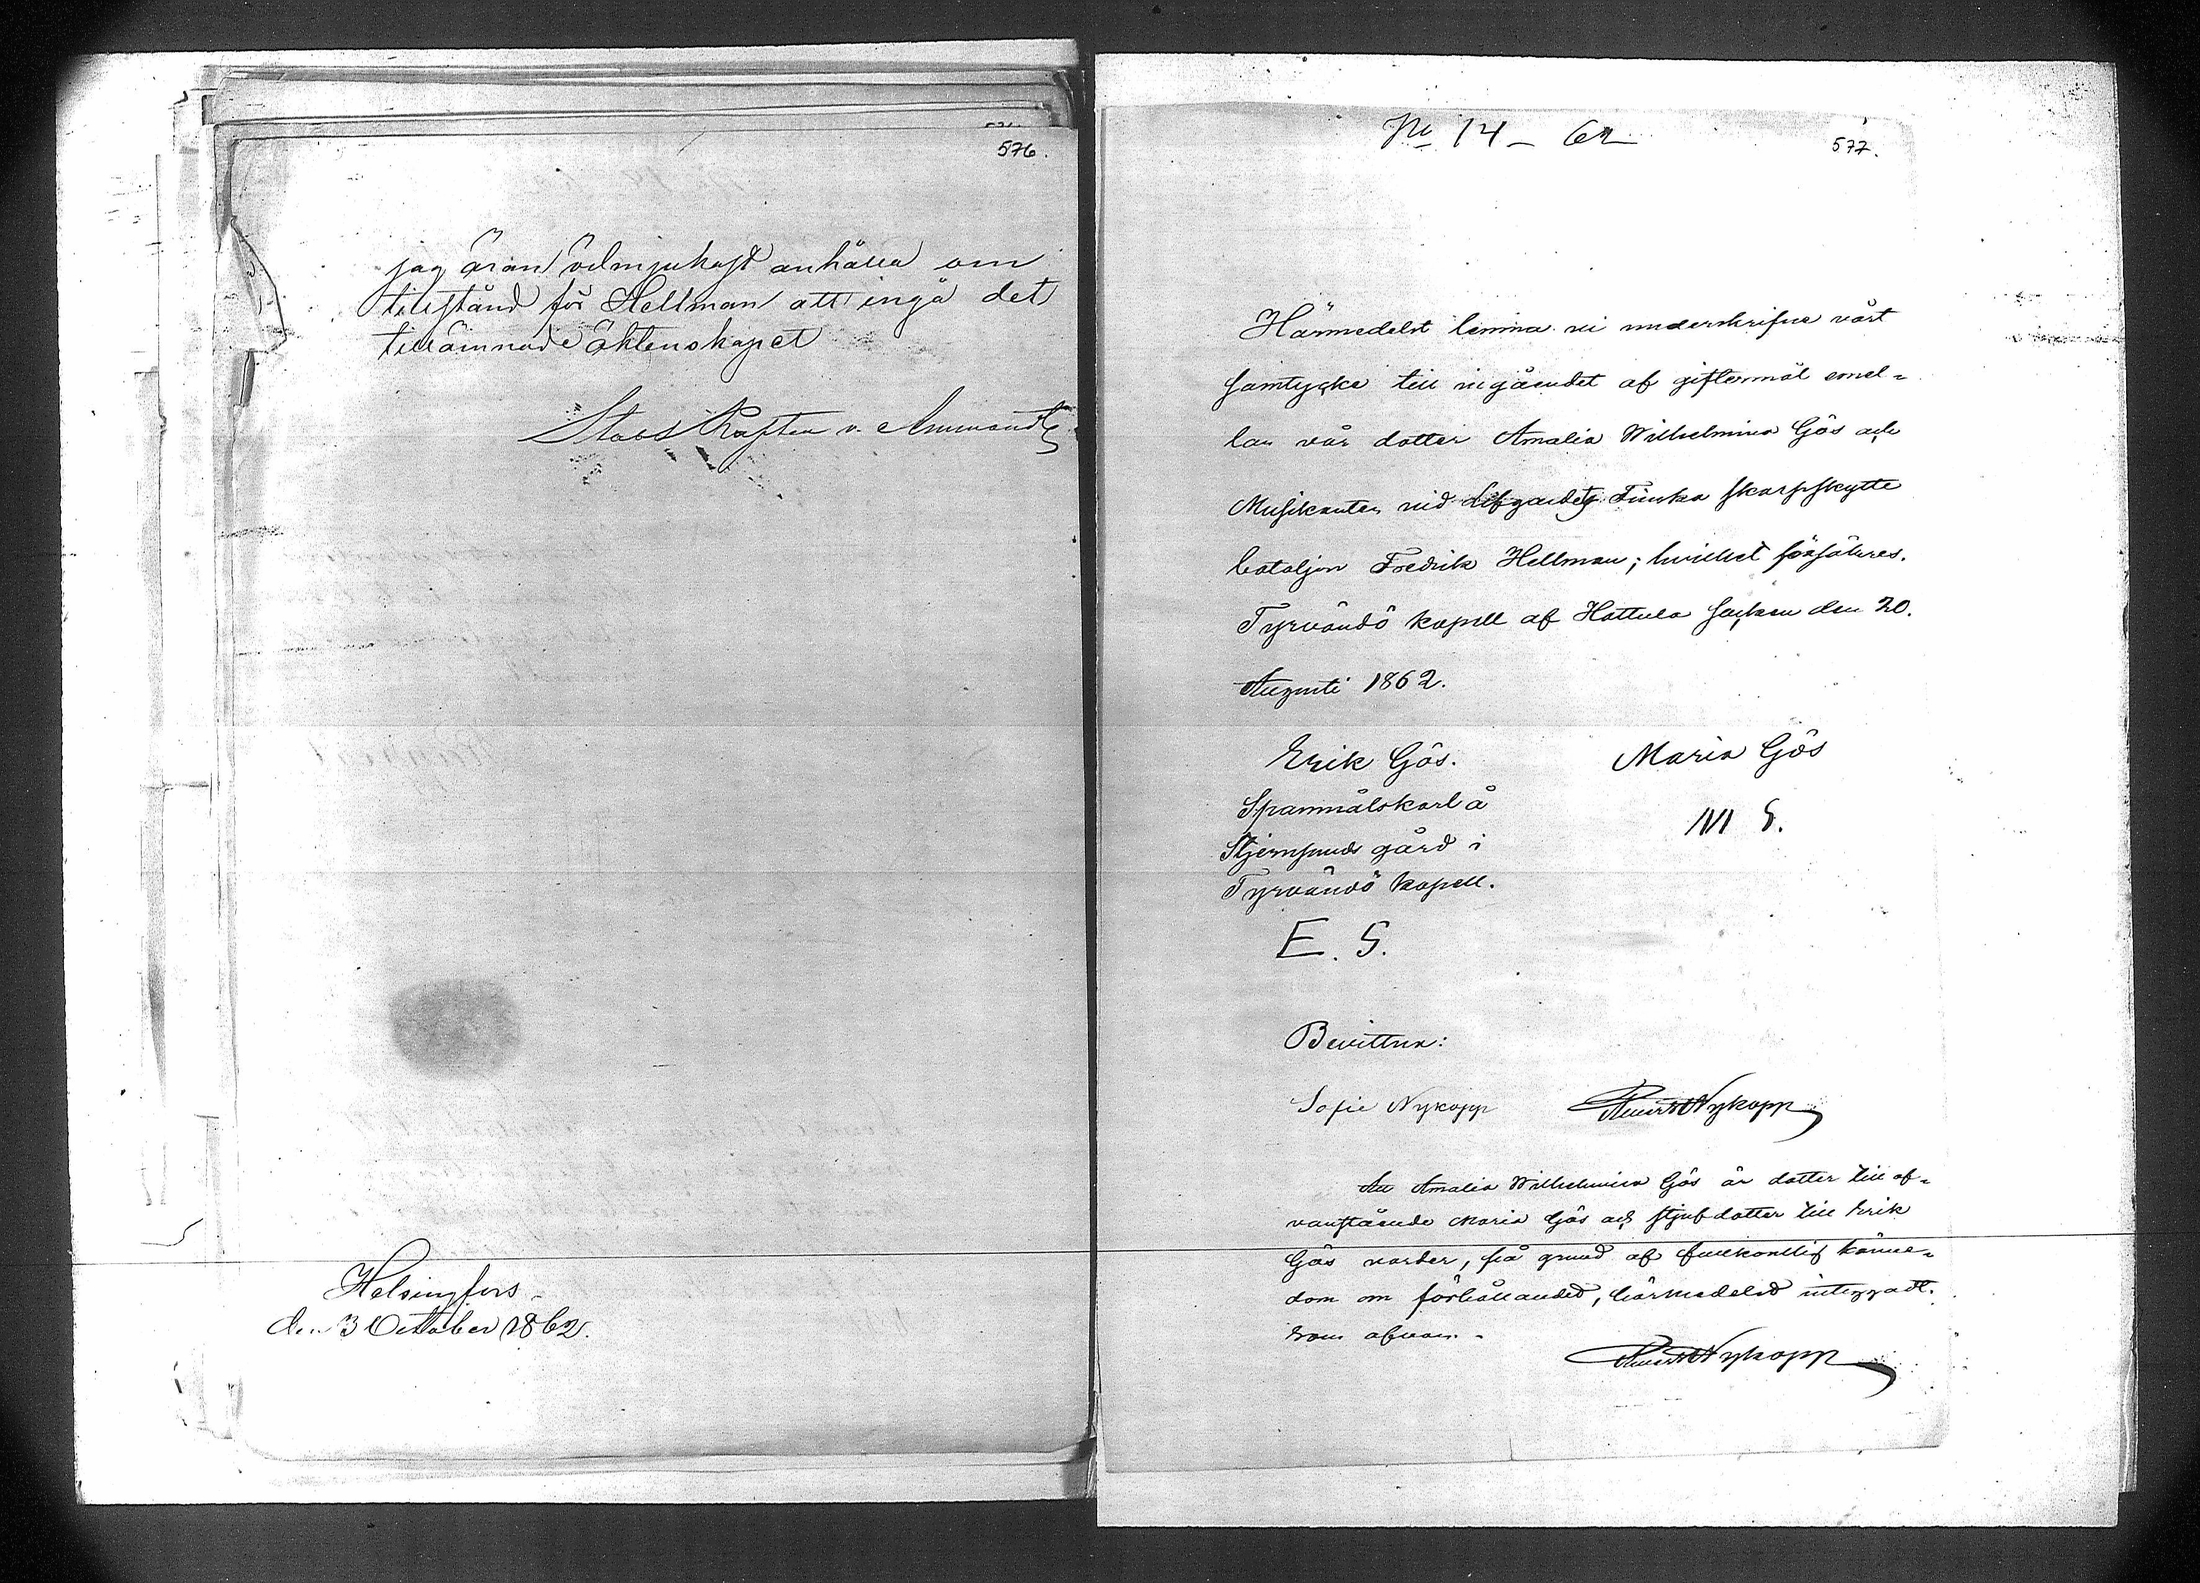 576.
jag äran ödmjukast anhålla om
tillstånd för Hellman att ingå det
tillämnade äktenskapet
Stabs Kapten v. Ammondt
Helsingfors
den 3 October 1862.
No 14 - 62
577.
Härmedelst lemna vi underskrifne vårt
samtycke till ingåendet af giftermål emel-
lan vår dotter Amalia Wilhelmina Gös och
Musikanten vid Lifgardets Finska skarpskytte
bataljon Fredrik Hellman; hvilket försäkres.
Tyrvändö kapell af Hattula socken den 20.
Augusti 1862.
Erik Gös.
Spannmålskarl å
Stjernsunds gård i
Tyrvändö kapell.
E. G.
Maria Gös
M G.
Bevittna:
Sofie Nykopp
Nykopp
Att Amalia Wilhelmina Gös är dotter till of-
vanstående Maria Gös och stjufdotter till Erik
Gös varder, på grund af fullkomlig känne-
dom om förhållandet, härmedelst intygadt.
Som ofvan. -
Nykopp